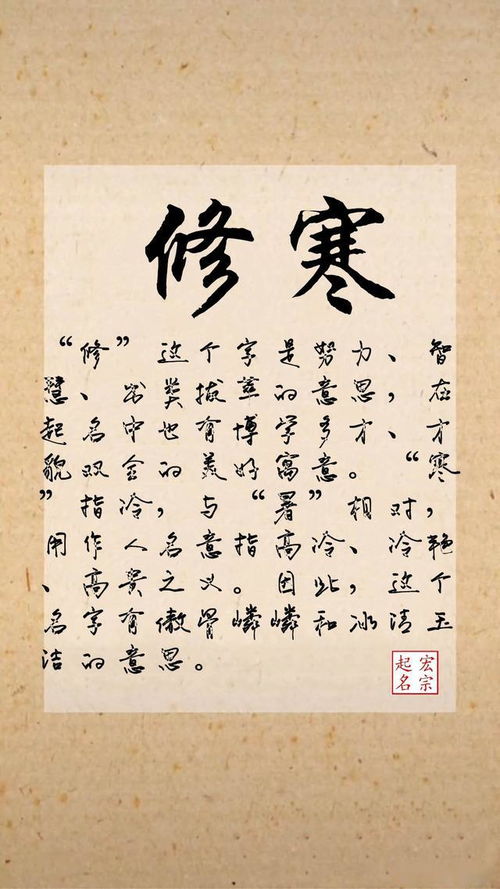 修寒
“修”这个字是努力、智
慧、出类拔萃的意思，在
起名中也有博学多才、才
貌双全的美好寓意。“寒
”指冷，与“暑”相对，
用作人名意指高冷、冷艳
、高贵之义。因此，这个
名字有傲骨嶙嶙和冰清玉
洁的意思。
宏宗
起名